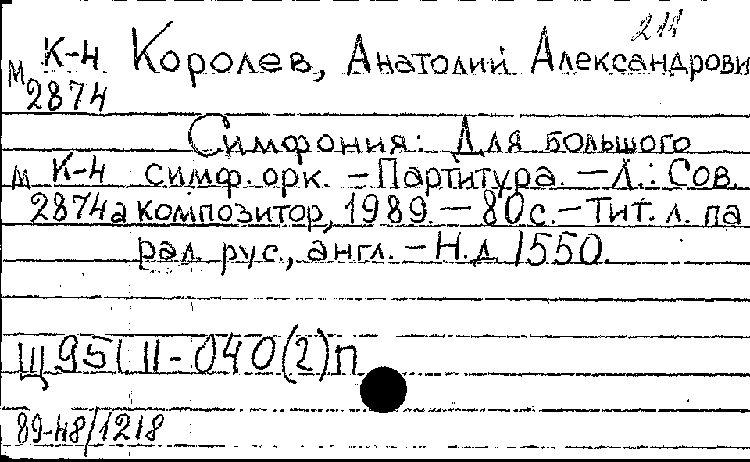 211
М К-4 Королев, Анатолий Александрови
2874
Симфония: Для большого
М К-4 симф. орк. — Партитура. — Л.: Сов.
2874а композитор, 1989. — 80 с. — Тит. л. па
рал. рус., англ. — Н.д. 1550.
Щ951 II-040(2)п
89-48/1218